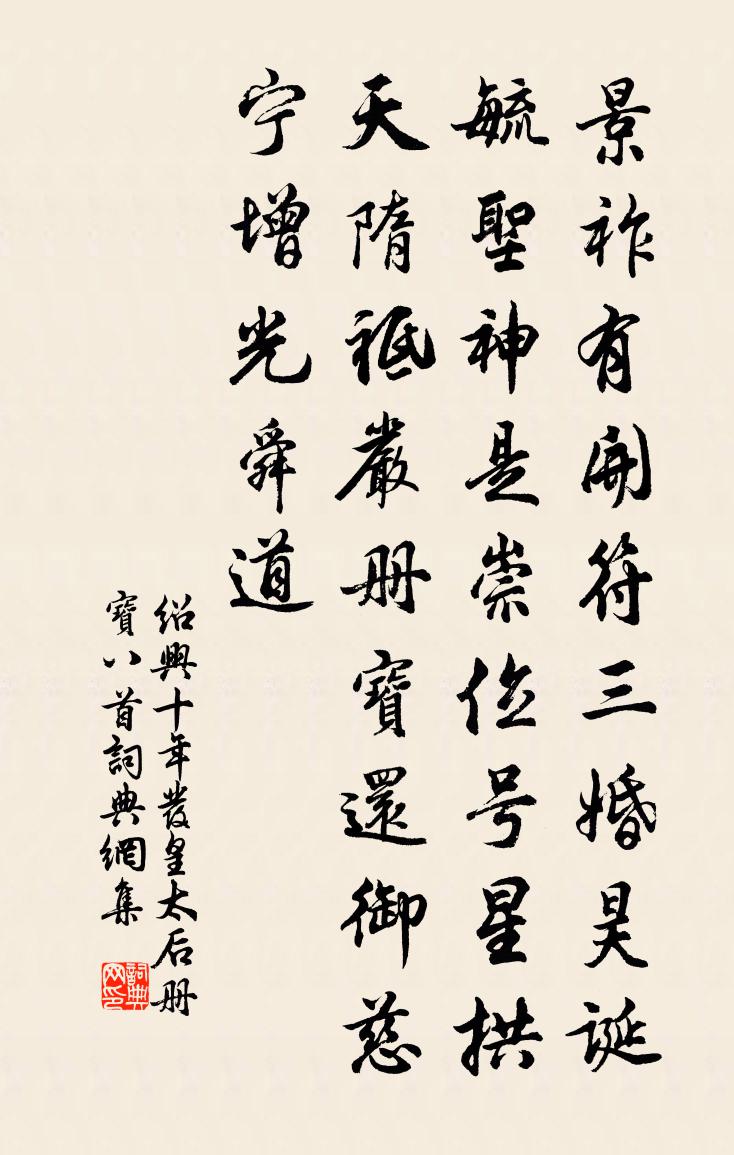 景祚有開符三婚昊誕
毓聖神是崇位号星拱
天隋祗嚴册寶還御慈
宁增光舜道
绍興十年發皇太后册
寶八首詞典網集
詞典网印